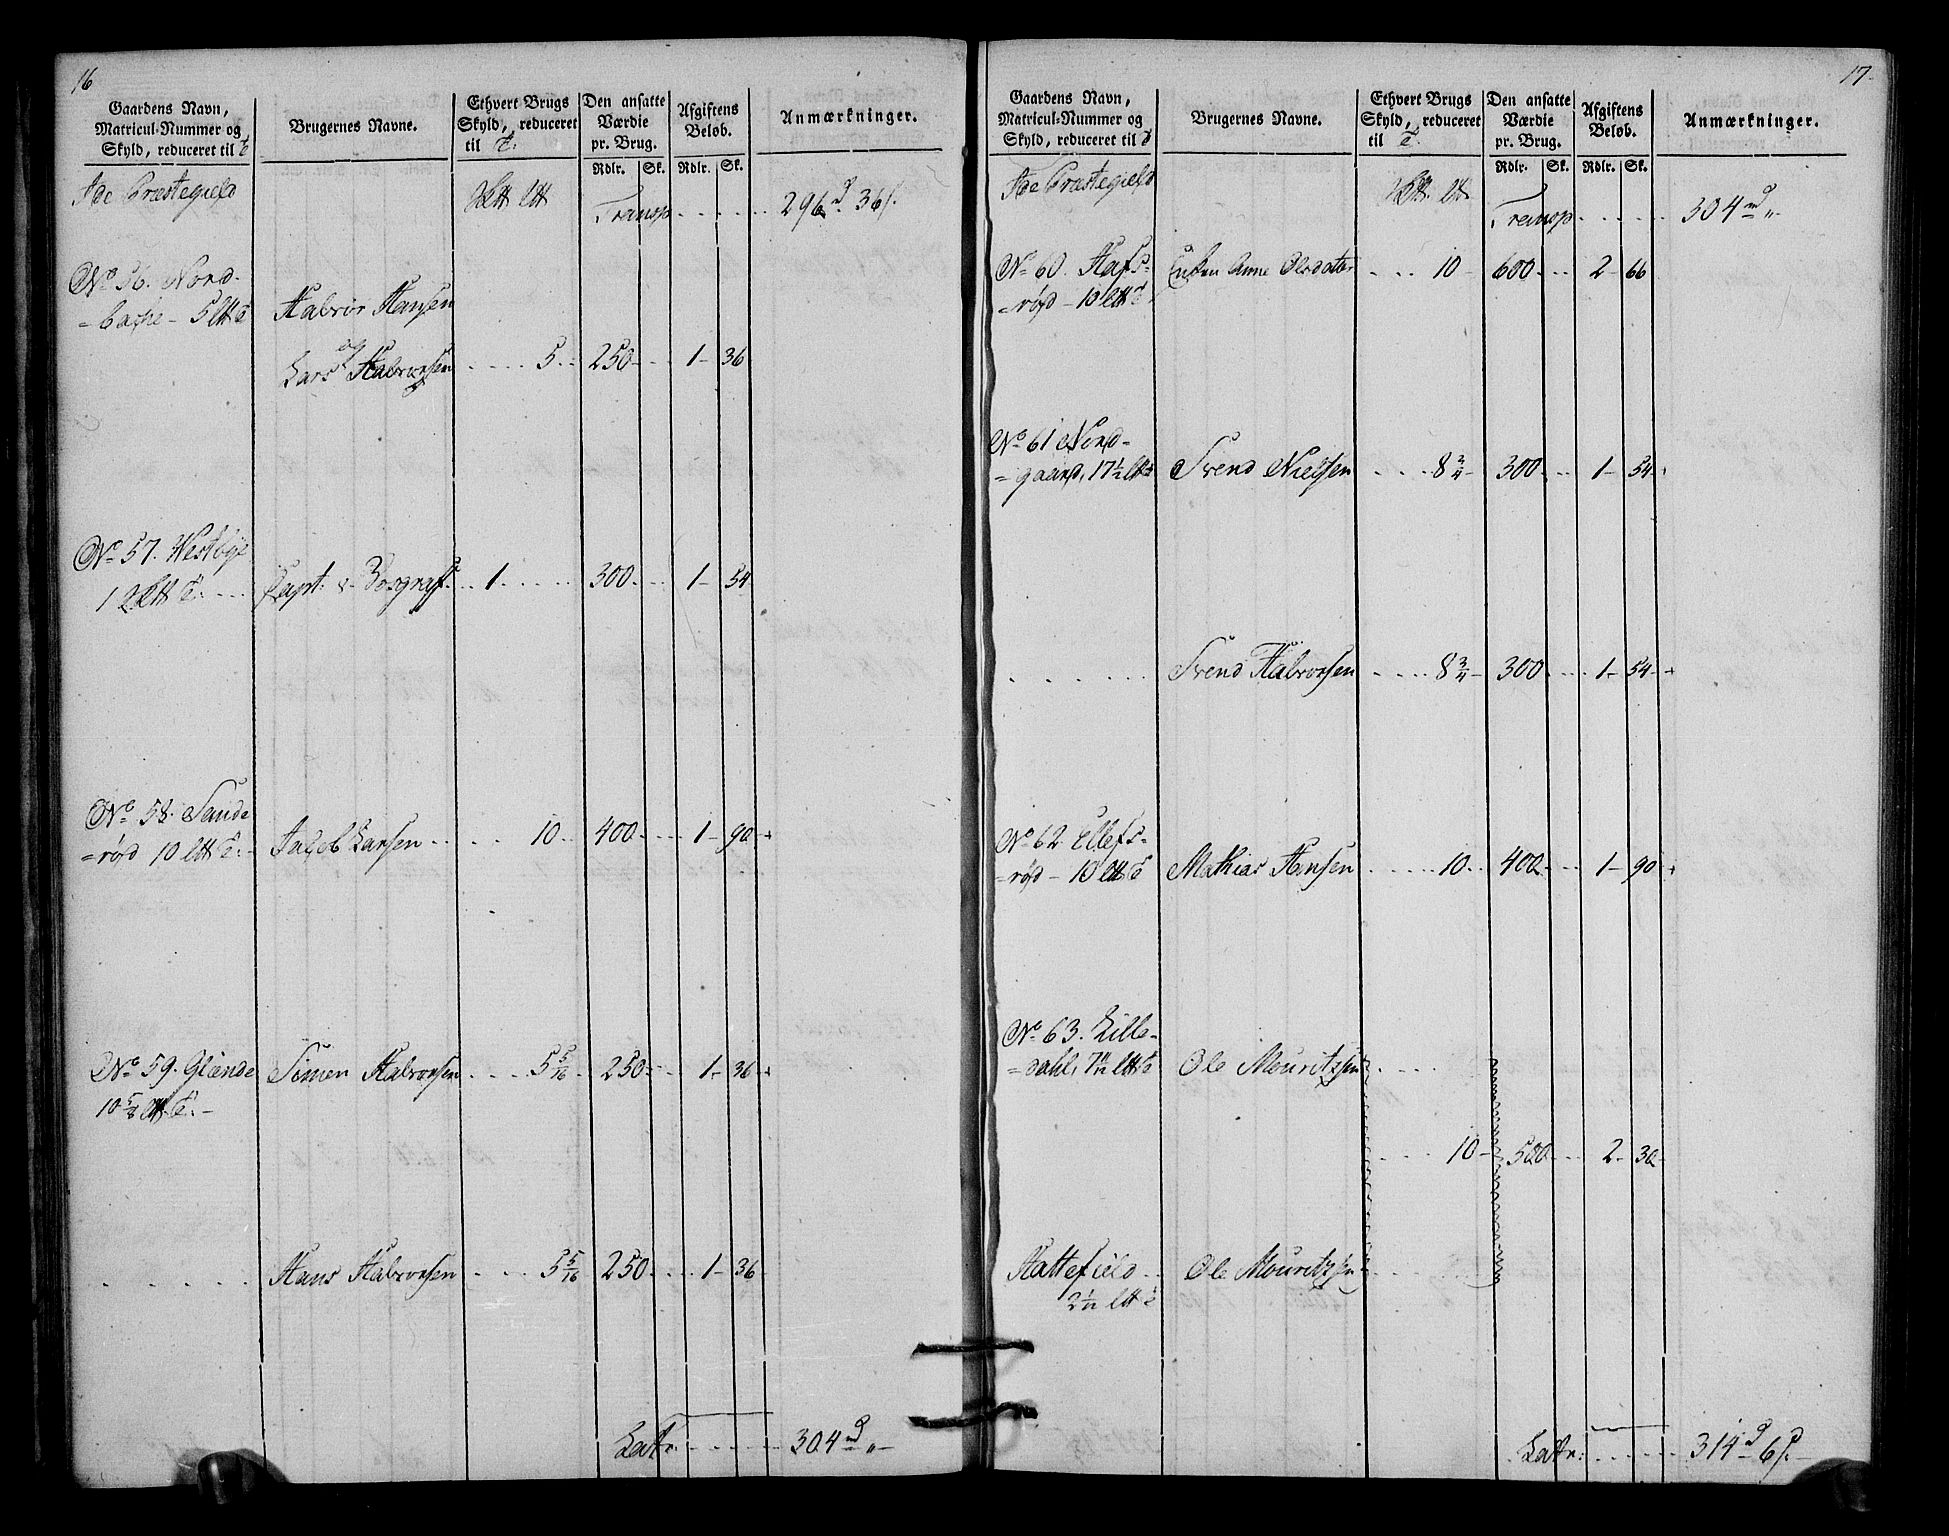 16
Gaardens Navn,
Matricul-Nummer og
Skyld, reduceret til
Brugernes Navne.
Ethvert Brugs
Skyld, reduceret
til
Den ansatte
Værdie
pr. Brug.
Afgiftens
Beløb.
Anmærkninger.
Rdlr. Sk. Rdlr. Sk.
Ide Præstegield
Transp 296 36
No 56. Nord-
=bakke - 5
Halvor Hansen
og
Lars Halvorsen 5 250 1 36
No 57. Westbye
1
Capt. v. 1 300 1 54
No 58. Sande
=rød 10 Jacob Larsen 10 400 1 90
No 59. Glende Simen Halvorsen 5 5/16 250 1 36
10 5/8
Hans Halvorsen 5 5/16 250 1 36
Latr. 304
17
Gaardens Navn,
Matricul-Nummer og
Skyld, reduceret til
Brugernes Navne.
Ethvert Brugs
Skyld, reduceret
til
Den ansatte
Værdie
pr. Brug.
Afgiftens
Beløb.
Anmærkninger.
Rdlr. Sk. Rdlr. Sk.
Ide Præstegield
Transp 304
No 60. Hafs- Enken Anne Olsdatter 10 600 2 66
=rød - 10
No 61 Nord-
=gaard, 17 1/2 Svend Nielsen 8 3/4 300 1 54
Svend Halvorsen 8 3/4 300 1 54
No 62 Ellefs-
=rød - 10 Mathias Hansen 10 400 1 90
No 63. Lille-
=dahl, 7 11/12 Ole Mouritzsen
10 500 2 30
Hattefield Ole Mouritzsen
2 1/12
Latr: 314 6